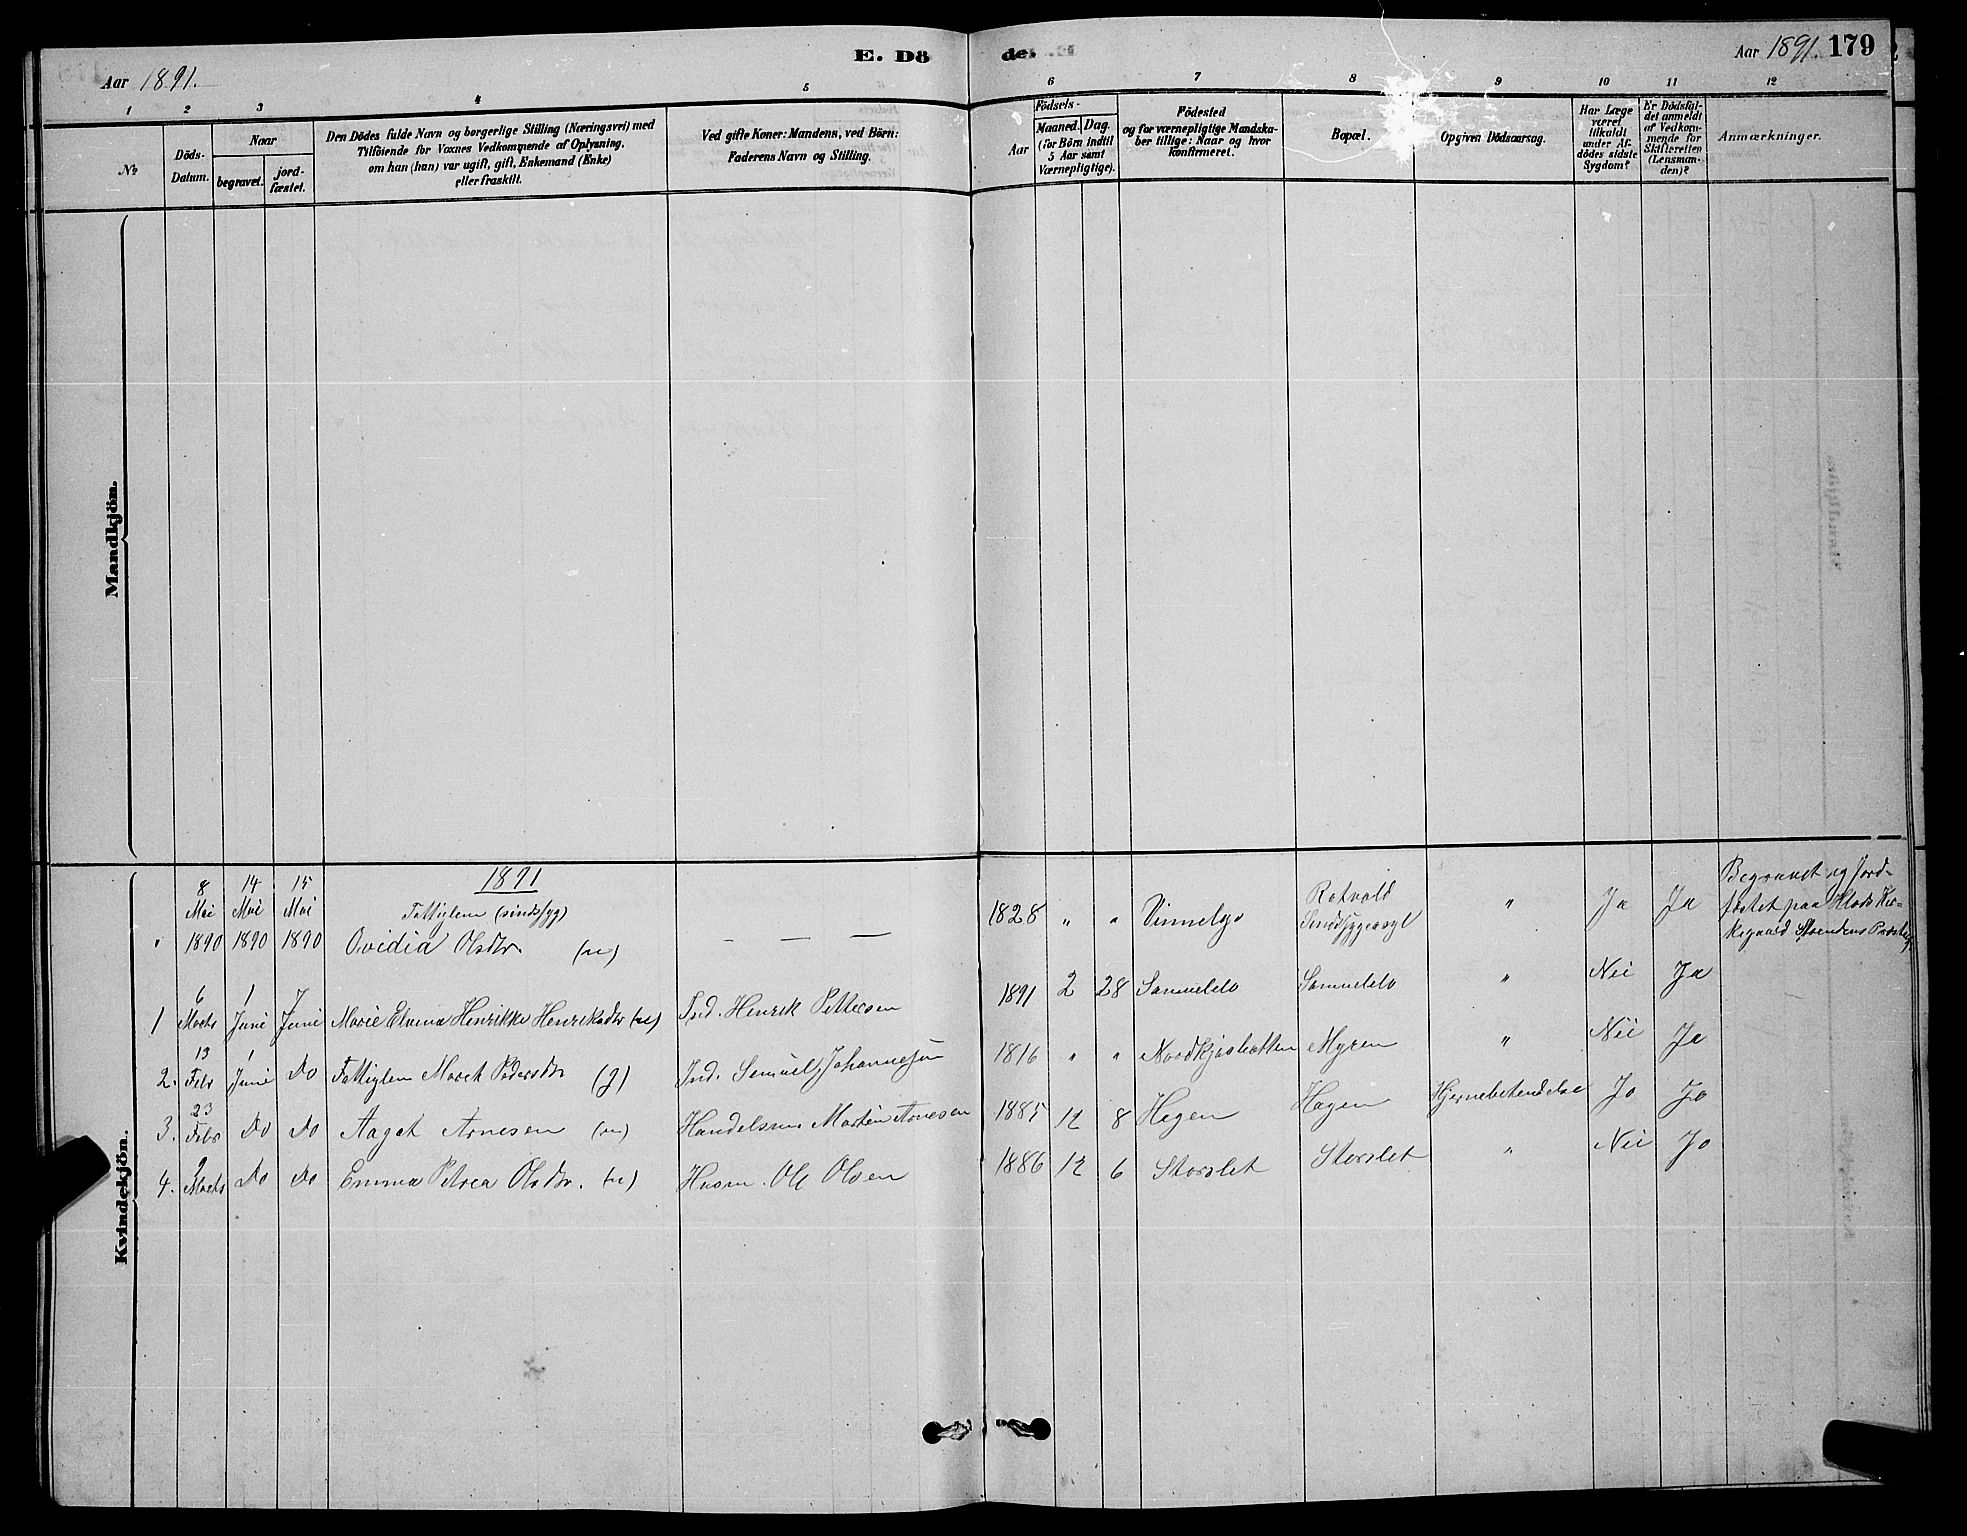 E. Dö
de.
Aar 1891.
Aar 1891. 179
1 2 3 4 5 6 7 8 9 10 11 12
№
Döds-
Datum.
Naar
begravet.
jord-
fæstet.
Den Dödes fulde Navn og borgerlige Stilling (Næringsvei) med
Tilföiende for Voxnes Vedkommende af Oplysning,
om han (hun) var ugift, gift, Enkemand (Enke)
eller fraskilt.
Ved gifte Koner: Mandens, ved Börn:
Faderens Navn og Stilling.
Födsels-
Aar
Maaned.
Dag.
(for Börn indtil
5 Aar samt
Værnepligtige).
Födested
og for værnepligtige Mandska-
ber tillige: Naar og hvor
konfirmeret.
Bopæl.
Opgiven Dödsaarsag.
Har Læge
været
tilkaldt
under Af-
dödes sidste
Sygdom?
Er Dödsfal-
det anmeldt
af Vedkom-
mende for
Skifteretten
(Lensman-
den)?
Anmærkninger.
Mandkjön.
Kvindekjön.
1891
" 8 Mai 1890 14 Mai 1890 15 Mai 1890 Fattiglem (sindssyg)
Ovidia Olsdtr (u) — — — 1828 " " Vinnelys Rotvold
Sindssygeasyl " Ja Ja Begravet og jord-
fæstet paa Hlads Kir-
kegaard Strindens Præstegj
1 6 Marts 1 Juni 7 Juni Marie Elvina Henrikke Henriksdtr (u) Ind. Henrik Pettersen 1891 2 28 Samuelelv Samuelelv " Nei Ja
2. 13 Febr 1 Juni Do Fattiglem Maret Pedersdtr (g) Ind. Samuel Johannesen 1816 " " Nordkjosbotten Myren " Nei Ja
3. 23 Febr Do Do Aagot Arnesen (u) Handelsm Martin Arnesen 1885 12 8 Hagen Hagen Hjernebetendelse Ja Ja
4. 9 Marts Do Do Emma Petrea Olsdtr. (u) Husm. Ole Olsen 1886 12 6 Storslet Storslet " Nei Ja